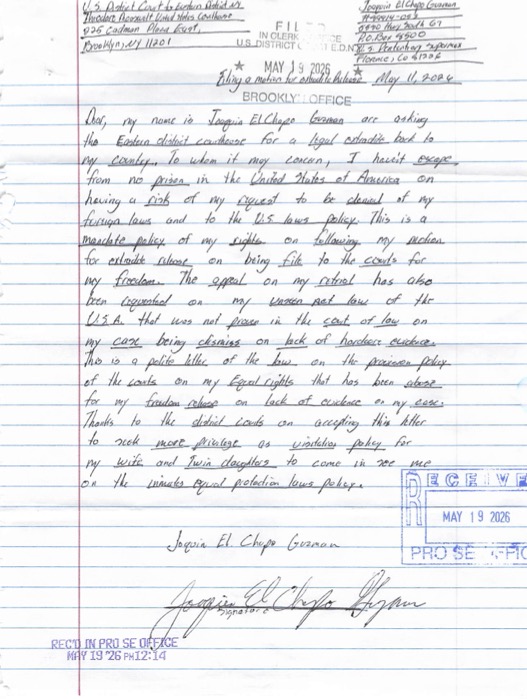 U.S. District Court Eastern District NY
Theodore Roosevelt United States Courthouse
225 Cadman Plaza East,
Brooklyn, NY 11201
Joaquin El Chapo Guzman
P.O. Box 8500
Florence, Co 81226
FILED
IN CLERK
U.S. DISTRICT COURT E.D.N.Y.
★ MAY 19 2026 ★
BROOKLYN OFFICE
Filing a motion for extradite Release May 11, 2026
Dear, my name is Joaquin El Chapo Guzman are asking
the Eastern district courthouse for a legal extradite back to
my county. To whom it may concern, I havein't escape
from no prison in the United States of America on
having a risk of my request to be denied of my
foreign laws and to the U.S. laws policy. This is a
mandate policy of my rights on following my motion
for extradite release on being file to the courts for
my freedom. The appeal on my retrial has also
been requested on my Act law of the
U.S.A. that was not proven in the court of law on
my case being dismiss on lack of hardcore evidence.
This is a polite letter of the law on the provision policy
of the courts on my Equal rights that has been abuse
for my freedom release on lack of evidence on my case.
Thanks to the district courts on accepting this letter
to seek more privilege as visitation policy for
my wife and Twin daughters to come in see me
on the inmates equal protection laws policy.
RECEIVE
MAY 19 2026
PRO SE OFFIC
Joquin El. Chapo Guzman
Joaquin El Chapo Guzman
Signature
REC'D IN PRO SE OFFICE
MAY 19 '26 PM12:14